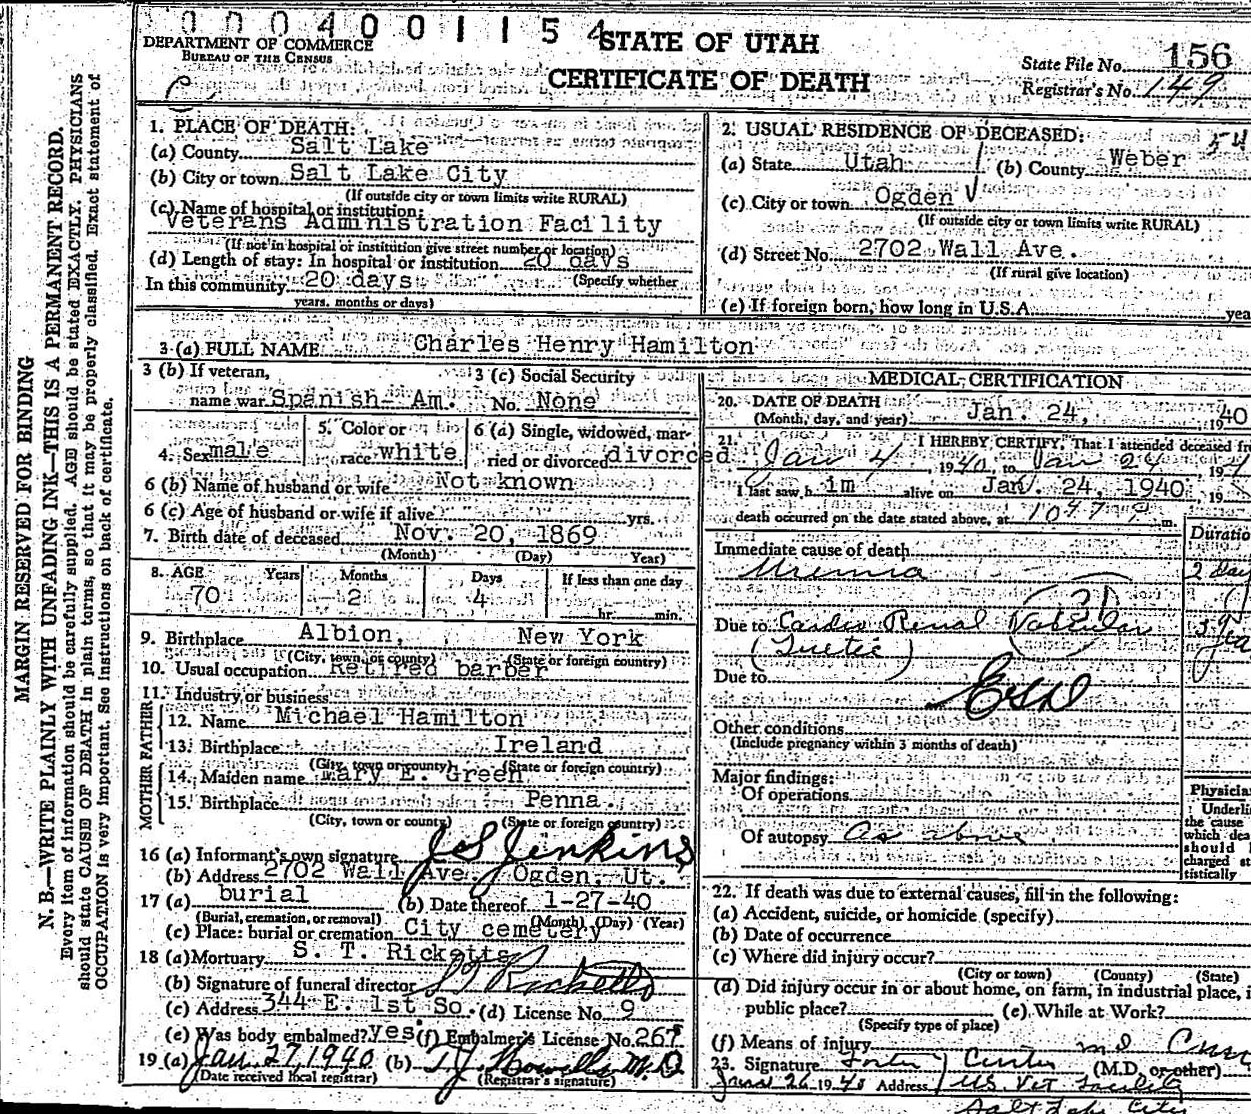 0004001154
DEPARTMENT OF COMMERCE
BUREAU OF THE CENSUS
STATE OF UTAH
CERTIFICATE OF DEATH
State File No. 156
Registrar's No. 149
MARGIN RESERVED FOR BINDING
N. B.—WRITE PLAINLY WITH UNFADING INK—THIS IS A PERMANENT RECORD.
Every item of information should be carefully supplied. AGE should be stated EXACTLY. PHYSICIANS
should state CAUSE OF DEATH in plain terms, so that it may be properly classified. Exact statement of
OCCUPATION is very important. See instructions on back of certificate.
1. PLACE OF DEATH:
(a) County Salt Lake
(b) City or town Salt Lake City
(If outside city or town limits write RURAL)
(c) Name of hospital or institution:
Veterans Administration Facility
(If not in hospital or institution give street number or location)
(d) Length of stay: In hospital or institution 20 days
In this community 20 days (Specify whether
years, months or days)
2. USUAL RESIDENCE OF DECEASED:
(a) State Utah (b) County Weber
(c) City or town Ogden
(If outside city or town limits write RURAL)
(d) Street No. 2702 Wall Ave.
(If rural give location)
(e) If foreign born, how long in U.S.A. yea
3 (a) FULL NAME Charles Henry Hamilton
3 (b) If veteran,
name war Spanish- Am.
3 (c) Social Security
No. None
4. Sex male
5. Color or
race white
6 (a) Single, widowed, mar-
ried or divorced divorced
6 (b) Name of husband or wife Not known
6 (c) Age of husband or wife if alive yrs.
7. Birth date of deceased Nov. 20, 1869
(Month) (Day) Year)
8. AGE Years Months Days If less than one day
70 2 4 hr. min.
9. Birthplace Albion, New York
(City, town, or county) (State or foreign country)
10. Usual occupation Retired barber
11. Industry or business
FATHER
12. Name Michael Hamilton
13. Birthplace Ireland
(City, town or county) (State or foreign country)
MOTHER
14. Maiden name Mary E. Green
15. Birthplace Penna.
(City, town or county) (State or foreign country)
16 (a) Informant's own signature J S Jenkins
(b) Address 2702 Wall Ave. Ogden, Ut.
17 (a) burial (b) Date thereof 1-27-40
(Burial, cremation, or removal) (Month) (Day) (Year)
(c) Place: burial or cremation City cemetery
18 (a) Mortuary S. T. Ricketts
(b) Signature of funeral director S T Ricketts
(c) Address 344 E. 1st So. (d) License No. 9
(e) Was body embalmed? yes (f) Embalmer's License No. 267
19 (a) Jan. 27, 1940 (b) T. J. Howells M.D
(Date received local registrar) (Registrar's signature)
MEDICAL CERTIFICATION
20. DATE OF DEATH
(Month, day, and year) Jan. 24, 1940
21. I HEREBY CERTIFY, That I attended deceased fr
Jan 4, 1940, to Jan 24 19
I last saw h im alive on Jan. 24, 1940, 19
death occurred on the date stated above, at m.
Duratio
Immediate cause of death
Uremia 2 day
Due to Cardio Renal Vascular
(Luetic)
Due to
Other conditions
(Include pregnancy within 3 months of death)
Major findings:
Of operations
Of autopsy As above
Physicia
Underli
the cause
which dea
should
charged st
tistically
22. If death was due to external causes, fill in the following:
(a) Accident, suicide, or homicide (specify)
(b) Date of occurrence
(c) Where did injury occur?
(City or town) (County) (State)
(d) Did injury occur in or about home, on farm, in industrial place, i
public place? (e) While at Work?
(Specify type of place)
(f) Means of injury
23. Signature (M.D. or other)
26 1940 Address U.S. Vet Facility
Salt Lake City